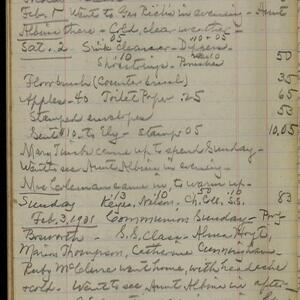 Feb. 1 Went to Geo Rich's in evening - Aunt
Albina there - Cold, clear weather -
.05 .10 + .05
Sat. 2. Sink Cleanser -
.10
Shoestrings. 50
Floorbrush (Counter brush) 35
Apples .40 Toilet Paper .25 65
Stamped envelopes 53
Sent $10 to Ely - stamp 05 10,05
Mary came up to spend Sunday -
Went to see Aunt Albina in evening -
Mrs Coleman came in, to warm up -
.10 .50 .10
Sunday Nelson, Ch. Coll, S.S. 83
Feb. 3, 1931 Communion Sunday - Prof
Bosworth - S.S. Class, Alma Hoyt,
Marion Thompson, Catherine Cunningham -
Ruby McClure went home, with headache
cold. Went to see Aunt Albina in after-